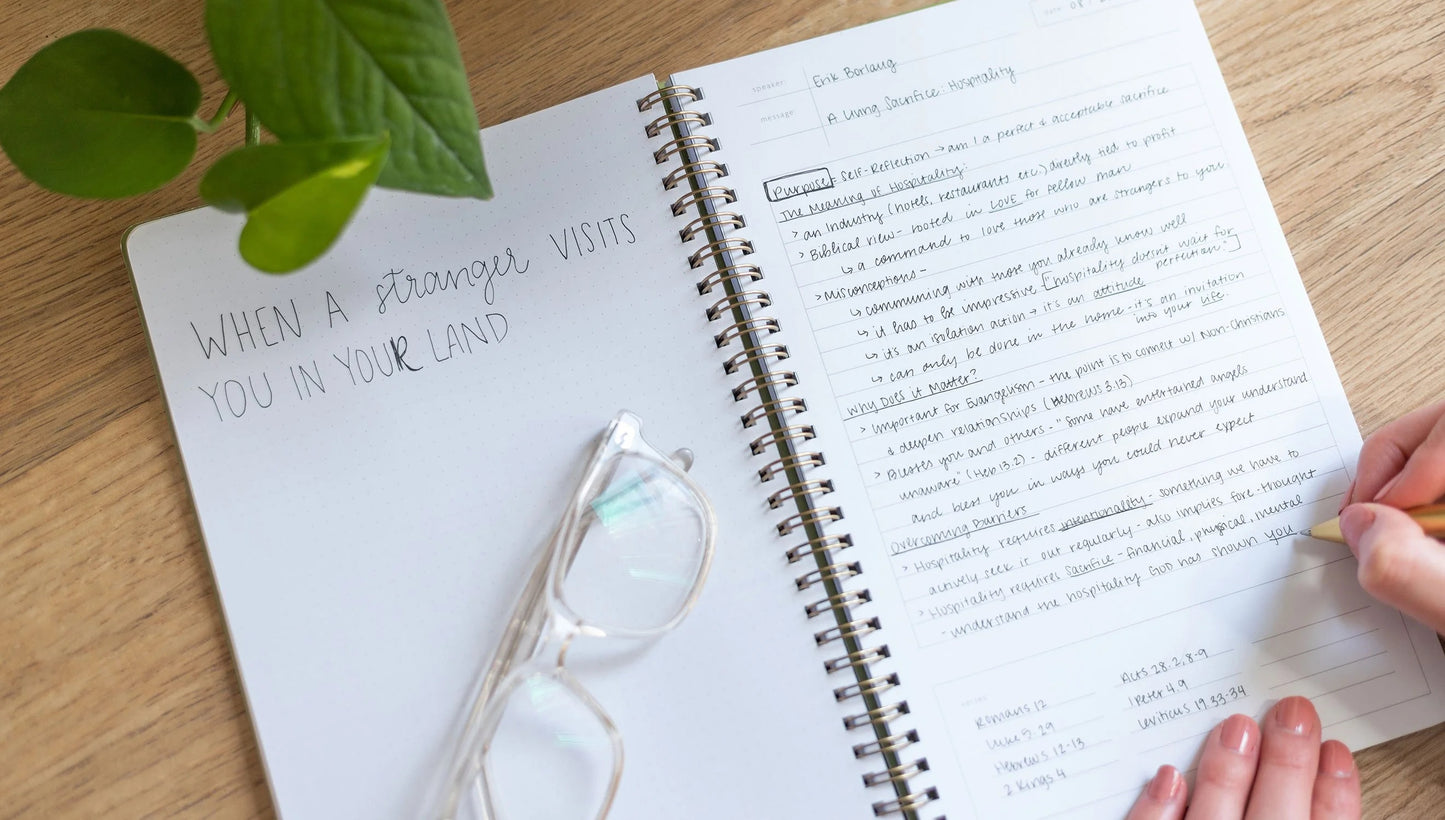 WHEN A stranger VISITS
YOU IN YOUR LAND
date 08 / 2
speaker: Erik Borlaug
message: A Living Sacrifice: Hospitality
Purpose = Self-Reflection → am I a perfect & acceptable sacrifice
The Meaning of Hospitality:
> an industry (hotels, restaurants etc.) directly tied to profit
> Biblical view - rooted in LOVE for fellow man
↳ a command to love those who are strangers to you.
> Misconceptions -
↳ communing with those you already know well
↳ it has to be impressive ["hospitality doesn't wait for
perfection."]
↳ its an isolation action → it's an attitude
↳ can only be done in the home - it's an invitation
into your life.
Why Does it Matter?
> Important for Evangelism - the point is to connect w/ Non-Christians
& deepen relationships (Hebrews 3.13)
> Blesses you and others - "Some have entertained angels
unaware" (Heb 13.2) - different people expand your understand
and bless you in ways you could never expect
Overcoming Barriers
> Hospitality requires intentionality - something we have to
actively seek it out regularly - also implies fore-thought
> Hospitality requires Sacrifice - financial, physical, mental
- understand the hospitality God has shown you
verses
Romans 12
Luke 5.29
Hebrews 12-13
2 Kings 4
Acts 28.2, 8-9
1 Peter 4.9
Leviticus 19.33-34